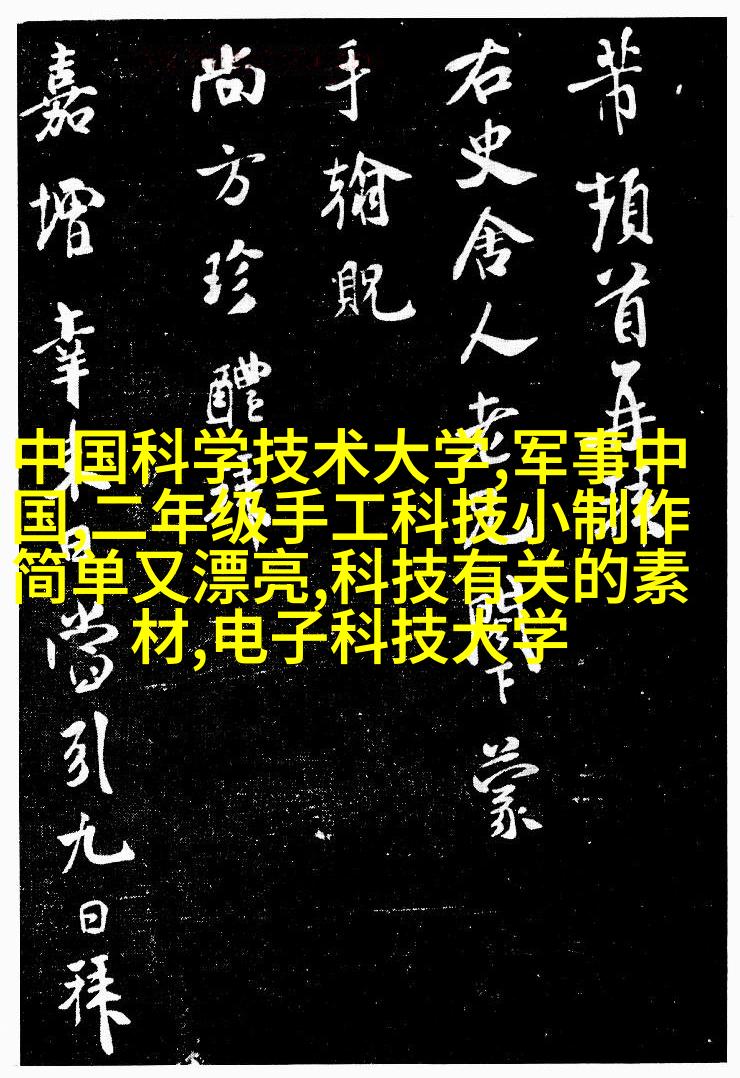 芾頓首再拜
右史舍人老兄閣下蒙
手翰貺
尚方珍醴拜
嘉增幸来日當引九日拜
中国科学技术大学,军事中
国,二年级手工科技小制作
简单又漂亮,科技有关的素
材,电子科技大学